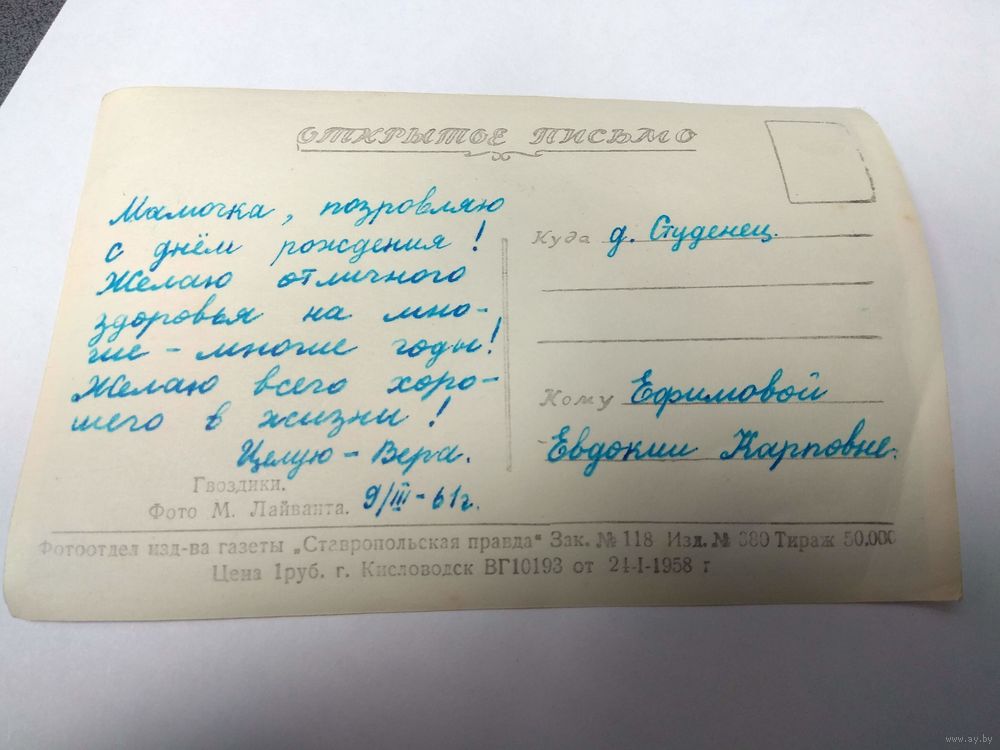 ОТКРЫТОЕ ПИСЬМО
Мамочка, позровляю
с днём рождения!
Желаю отличного
здоровья на мно-
гие-многие годы!
Желаю всего хоро-
шего в жизни!
Целую - Вера.
9/III-61г.
Куда д. Студенец.
Кому Ефимовой
Евдокии Карповне.
Гвоздики.
Фото М. Лайванта.
Фотоотдел изд-ва газеты „Ставропольская правда" Зак. № 118 Изд. № 380 Тираж 50.000
Цена 1руб. г. Кисловодск ВГ10193 от 24-I-1958 г
www.ay.by